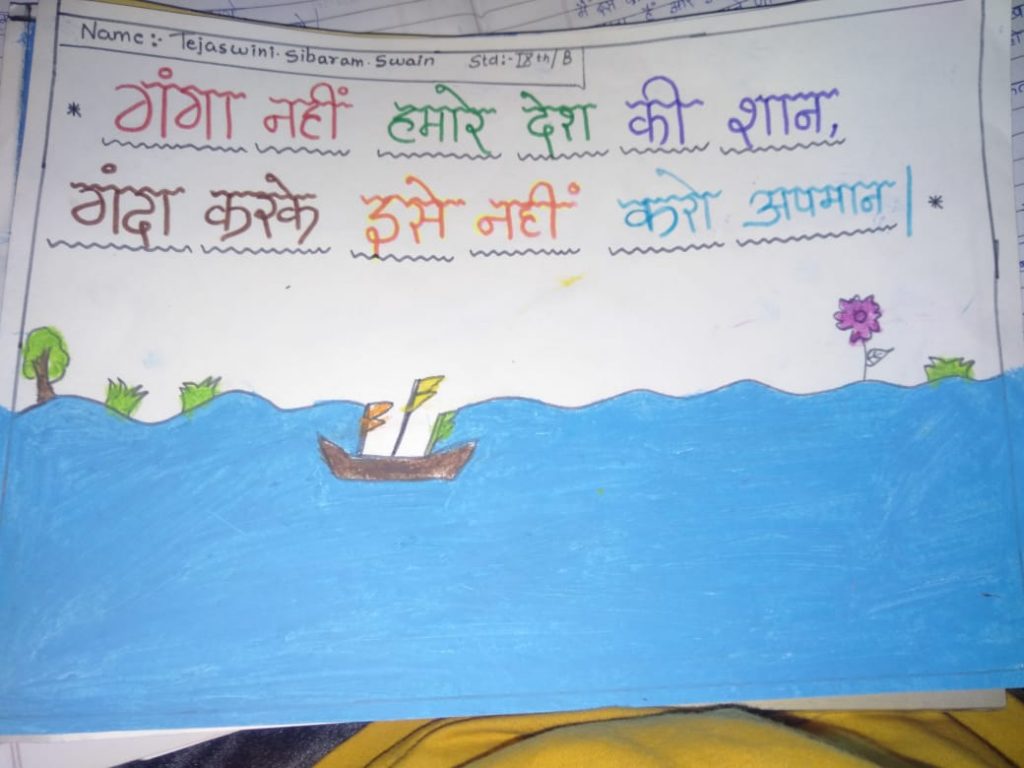 Name:- Tejaswini. Sibaram. Swain Std:- IXth/B
* गंगा नहीं हमारे देश की शान,
गंदा करके इसे नहीं करो अपमान| *